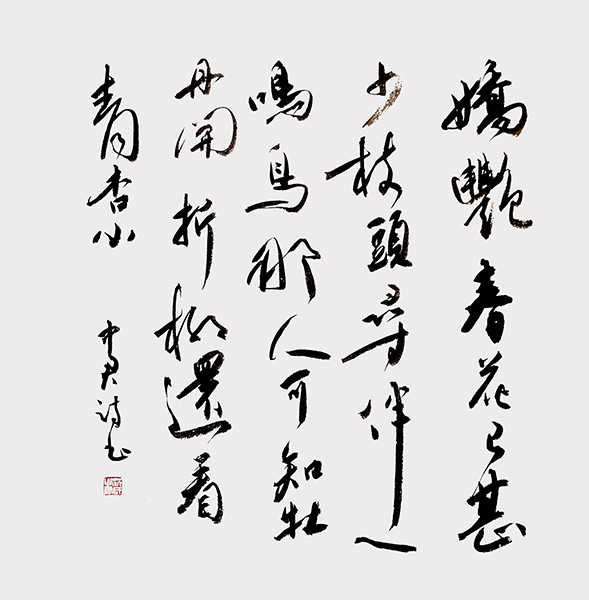 嬌艷春花已甚
少枝頭尋伴
鳴鳥那人可知牡
丹開折柳還看
青杏小
中昊诗书